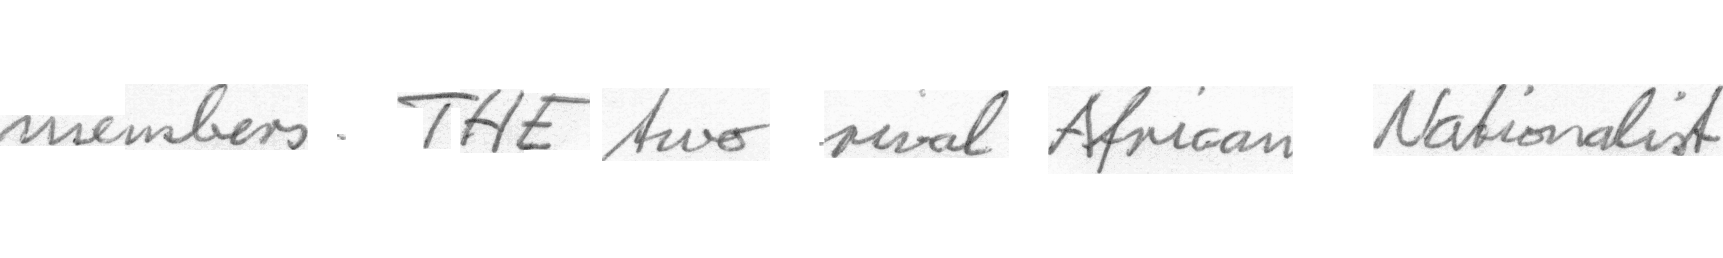 members. THE two rival African Nationalist